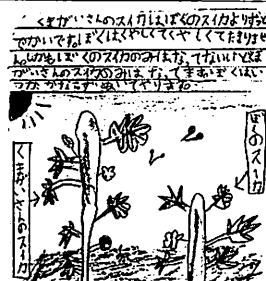 くまがいさんのスイカはぼくのスイカよりずっと
でかいです。ぼくはくやしくてくやしくてたまりませ
ん。しかもぼくのスイカのみはなってないけどくま
がいさんのスイカのみはなってます。ぼくはい
つかかならずぬいてやります。
ぼくのスイカ
くまがいさんのスイカ